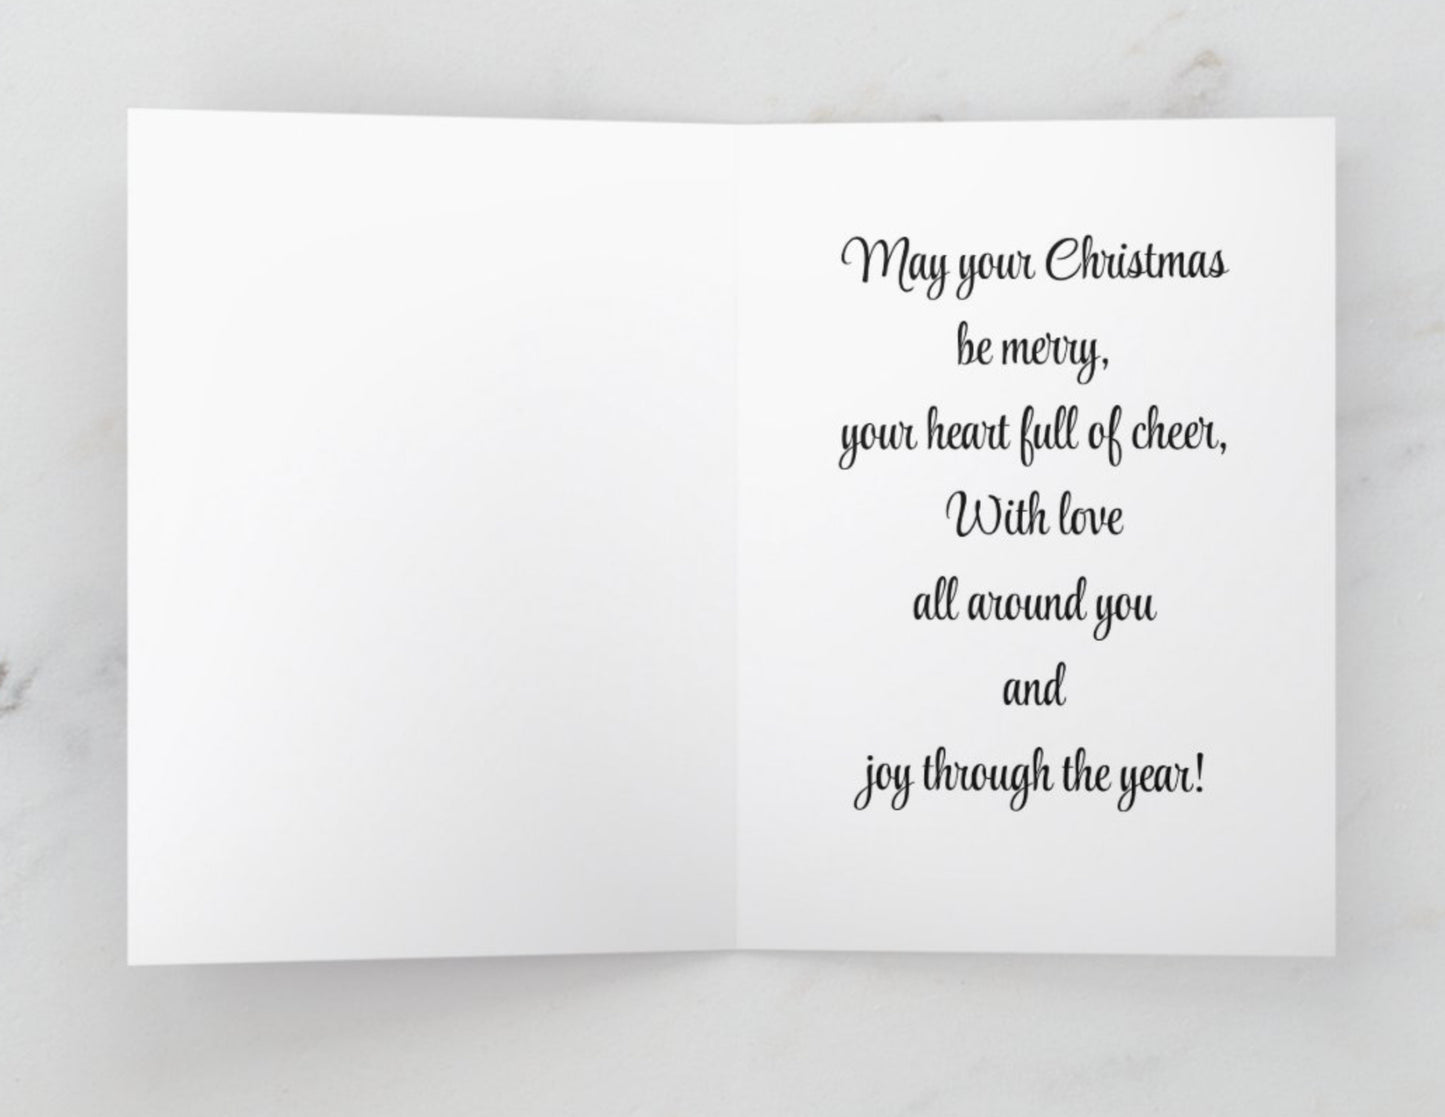 May your Christmas
be merry,
your heart full of cheer,
With love
all around you
and
joy through the year!